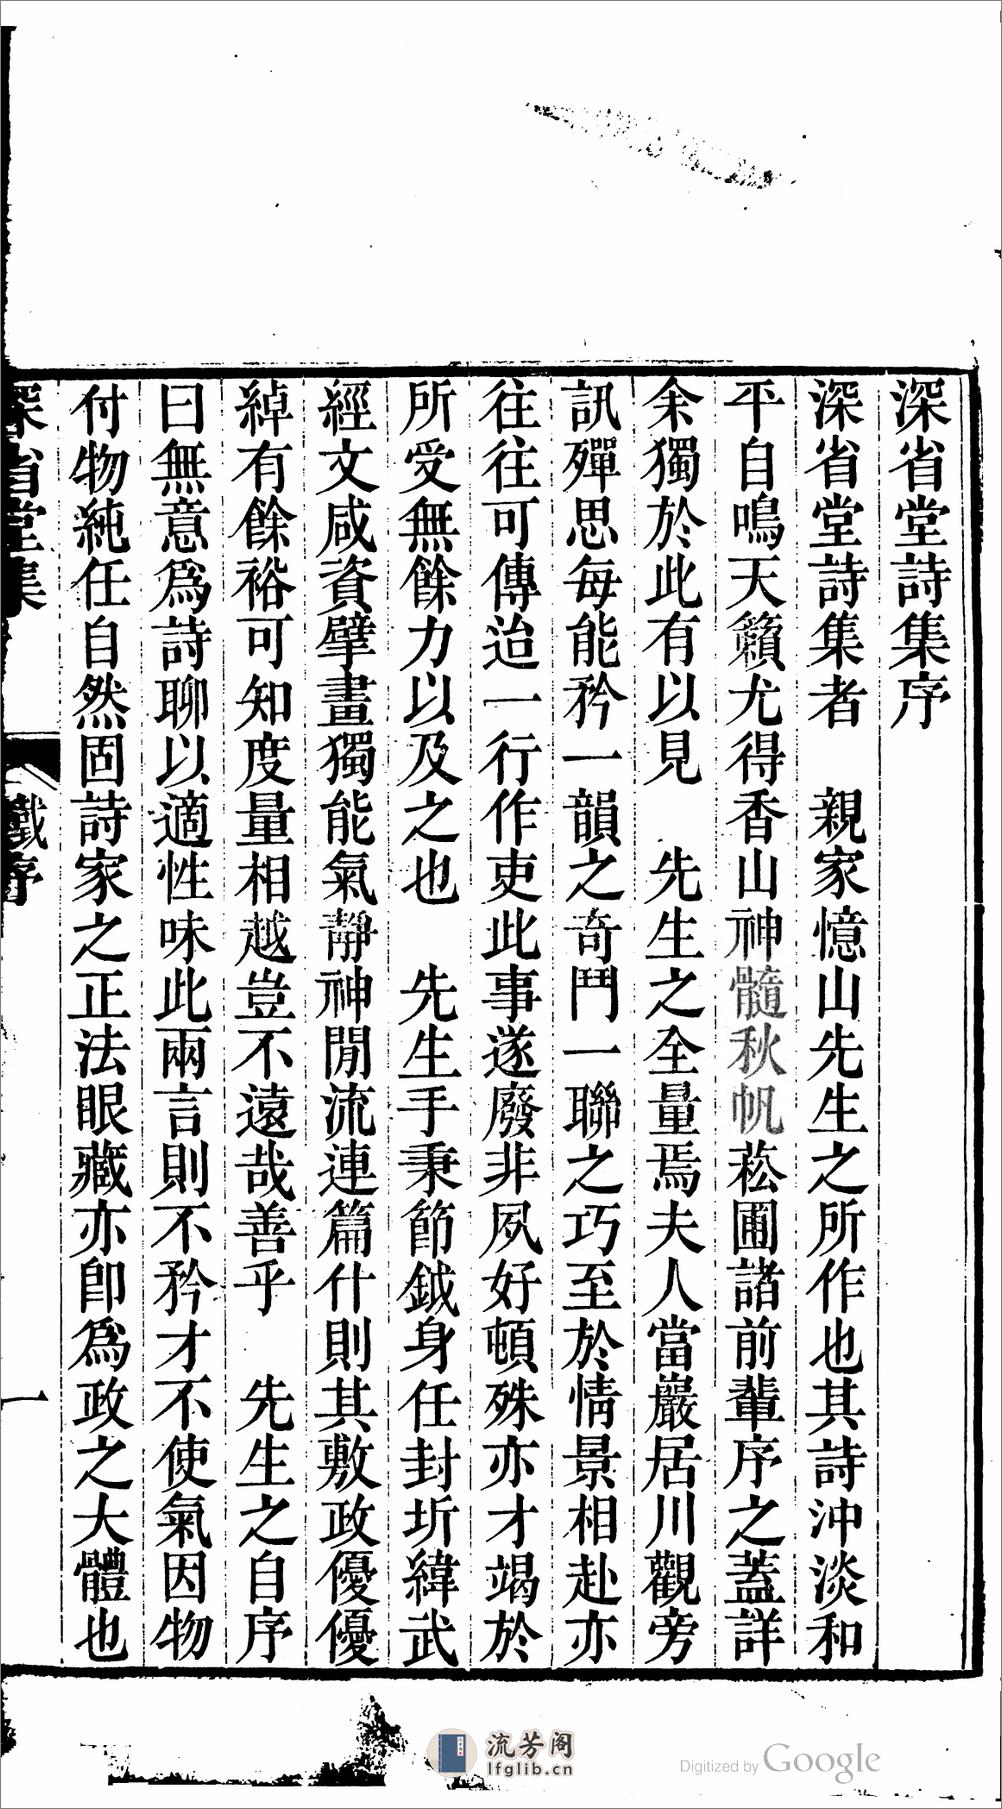 深省堂詩集序
深省堂詩集者　親家憶山先生之所作也其詩沖淡和
平自鳴天籟尤得香山神髓秋帆菘圃諸前輩序之蓋詳
余獨於此有以見　先生之全量焉夫人當巖居川觀旁
訊殫思每能矜一韻之奇鬥一聯之巧至於情景相赴亦
往往可傳迨一行作吏此事遂廢非夙好頓殊亦才竭於
所受無餘力以及之也　先生手秉節鉞身任封圻緯武
經文咸資擘畫獨能氣靜神閒流連篇什則其敷政優優
綽有餘裕可知度量相越豈不遠哉善乎　先生之自序
曰無意爲詩聊以適性味此兩言則不矜才不使氣因物
付物純任自然固詩家之正法眼藏亦卽爲政之大體也
深省堂集　鐵序　一
流芳阁
lfglib.cn
Digitized by Google